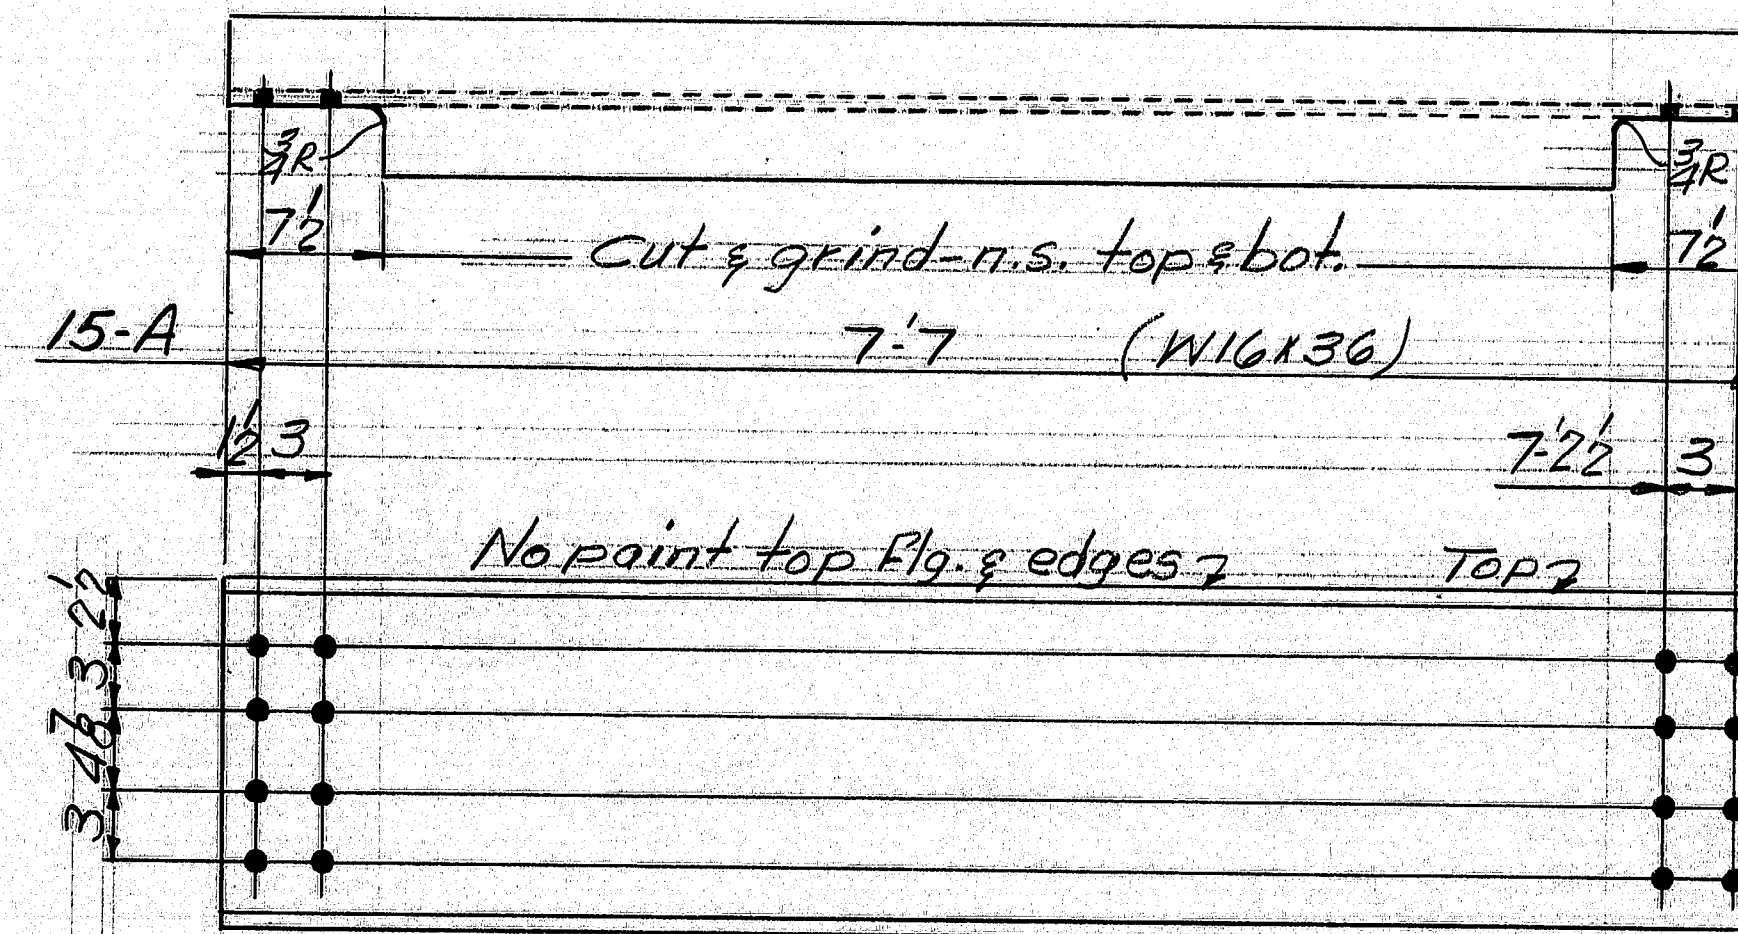 3/4 R 3/4 R
7 1/2 Cut & grind-n.s. top & bot. 7 1/2
15-A 7'-7 (W16x36)
1 1/2 3 7'-2 1/2 3
No paint top Flg. & edges Top
2 1/2
3
4 7/8
3